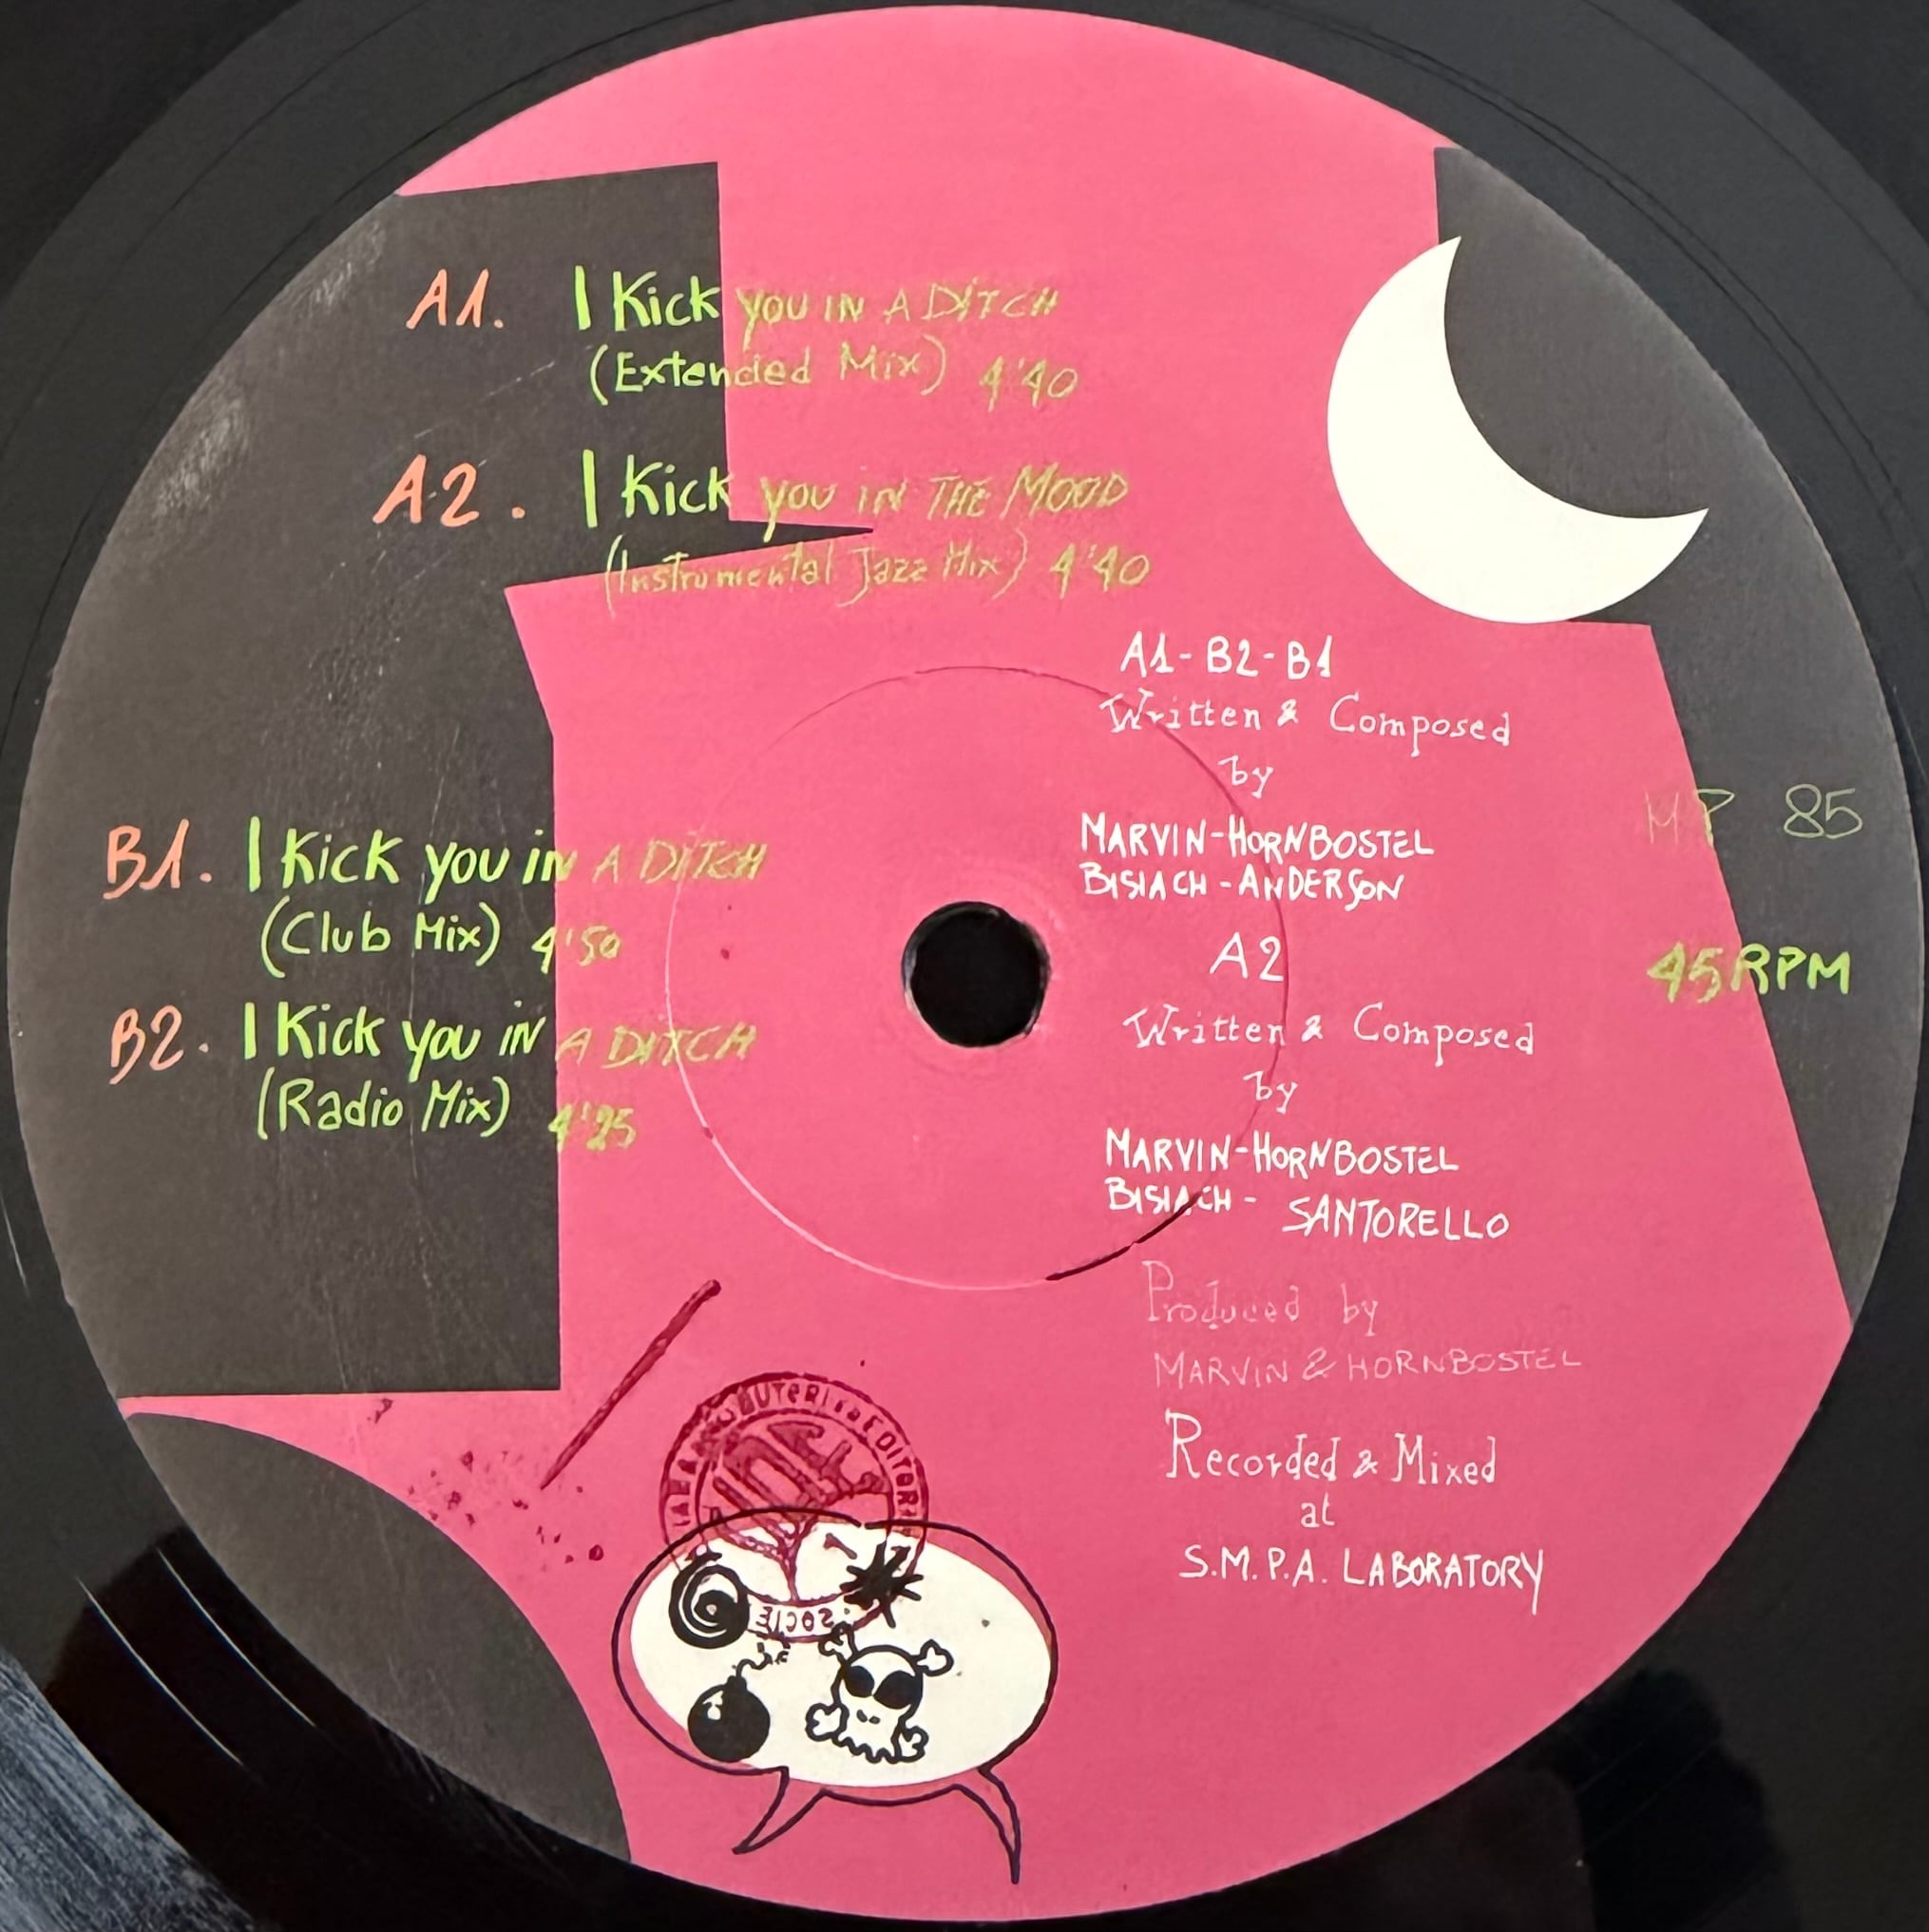 A1. I Kick you IN A DITCH
(Extended Mix) 4'40
A2. I Kick you IN THE MOOD
(Instrumental Jazz Mix) 4'40
B1. I Kick you in A DITCH
(Club Mix) 4'50
B2. I Kick you IN A DITCH
(Radio Mix) 4'25
A1-B2-B1
Written & Composed
by
MARVIN-HORNBOSTEL
BISIACH-ANDERSON
A2
Written & Composed
by
MARVIN-HORNBOSTEL
BISIACH- SANTORELLO
Produced by
MARVIN & HORNBOSTEL
Recorded & Mixed
at
S.M.P.A. LABORATORY
85
45RPM